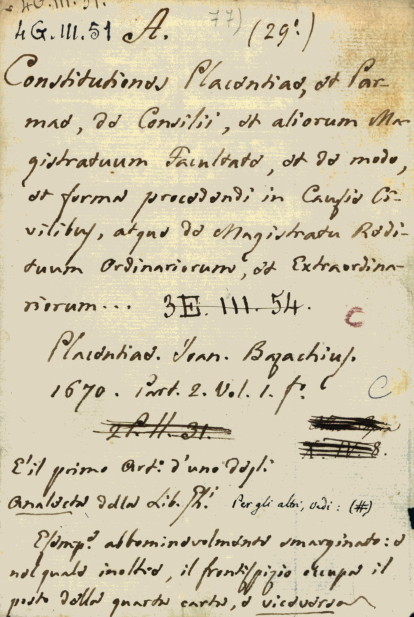 4G.III.51.
4G.III.51 A. 77) (29.)
Constitutiones Placentiae, et Par-
mae, de Consilii, et aliorum Ma-
gistratuum Facultate, et de modo,
et forma procedendi in Causis Ci-
vilibus, atque de Magistratu Redi-
tuum Ordinariorum, et Extraordina-
riorum... 3E.III.54.
C
Placentiae. Joan. Bazachius.
1670. Part. 2. Vol. 1. f.º
C
È il primo Art.º d'uno degli
Analecta della Lib. Per gli altri, vedi: (#)
Esemp.e abbominevolmente smarginato: e
nel quale inoltre, il frontispizio occupa il
posto della quarta carta, e viceversa